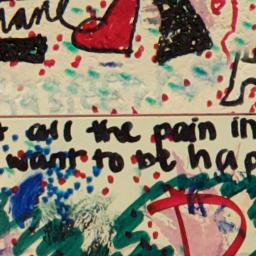 all the pain in
want to be hap